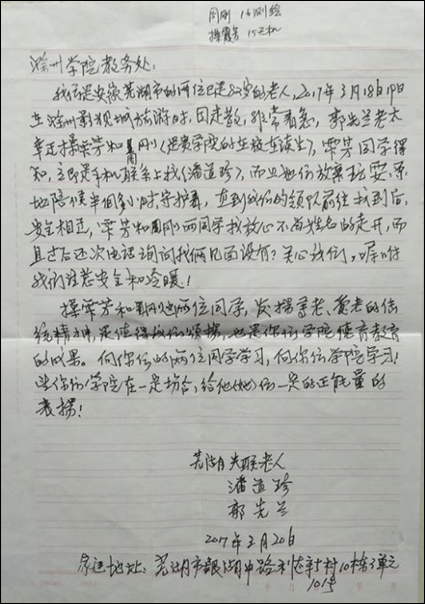 周刚 16测绘
操霞芳 15工机
滁州学院教务处:
我们是安徽芜湖市的两位已是80岁的老人,2017年3月18日19日
在滁州影视城旅游时,因走散,非常着急,郭先兰老太
幸遇操霞芳和周刚(是贵学院的在校在读生),霞芳同学得
知,立即是手机联系上我(潘道珍),而且他俩放弃玩耍,原
地陪候半個多小时守护着,直到我们的领队前往找到后,
安全相逢,霞芳和周刚两同学投放心不留姓名的走开,而
且过后还次电话询问我俩见面没有?关心我们,嘱咐
我们注意安全和冷暖!
操霞芳和周刚这两位同学,发扬尊老、爱老的传
统精神,是值得我们颂扬,也是你们学院德育教育
的成果。向你们的两位同学学习,向你们学院学习!
望你们学院在一定场合,给他(她)们一定的正能量的
表扬!
芜湖失联老人
潘道珍
郭先兰
2017年3月20日
家进地址:芜湖市银湖中路利达新村10栋3单元
101号